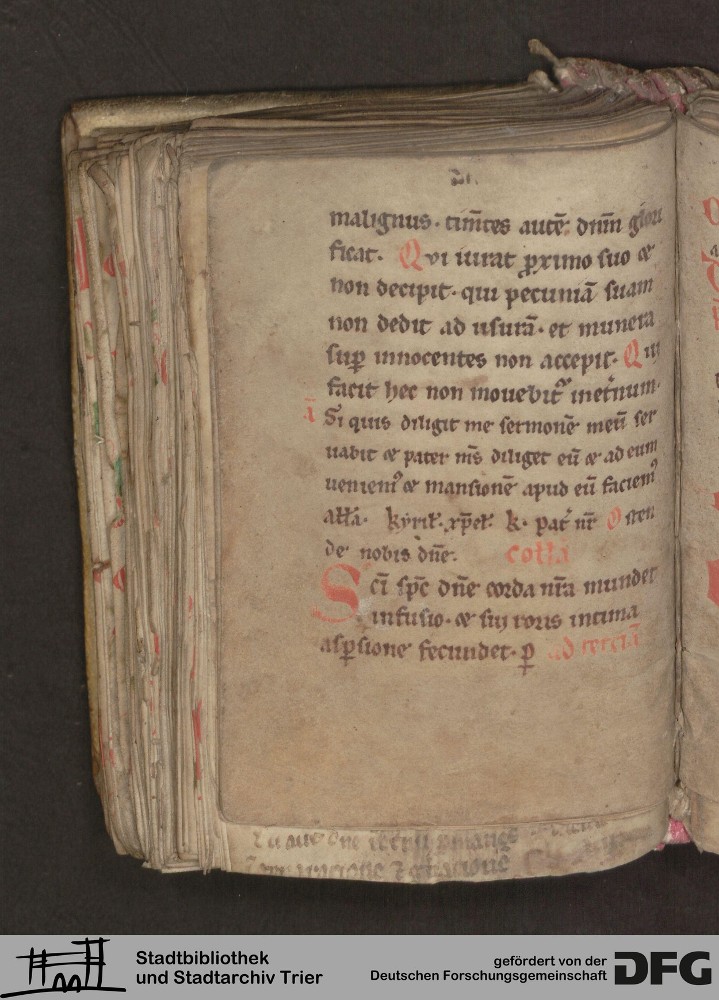 malignus · tim̅tes aute̅ dn̅m glori
ficat · Qvi iurat ꝓximo suo ⁊
non decipit · qui pecunia̅ suam
non dedit ad usura̅ · et munera
suꝑ innocentes non accepit · Qui
facit hec non mouebit᷑ inet̅num ·
a̅ Si quis diligit me sermone̅ meu̅ ser
uabit ⁊ pater mˢ diliget eu̅ ⁊ ad eum
ueniemꝰ ⁊ mansione̅ apud eu̅ faciemꝰ
all̅a · kyriel̅ · xp̅el̅ · k · pat̅ nr̅ Osten
de nobis dn̅e · coll̅a
Sc̅i sp̅c dn̅e corda nr̅a mundet
infusio · ⁊ sui roris intima
asꝑsione fecundet · ꝑ ad tercia̅
Stadtbibliothek
und Stadtarchiv Trier
gefördert von der
Deutschen Forschungsgemeinschaft
DFG